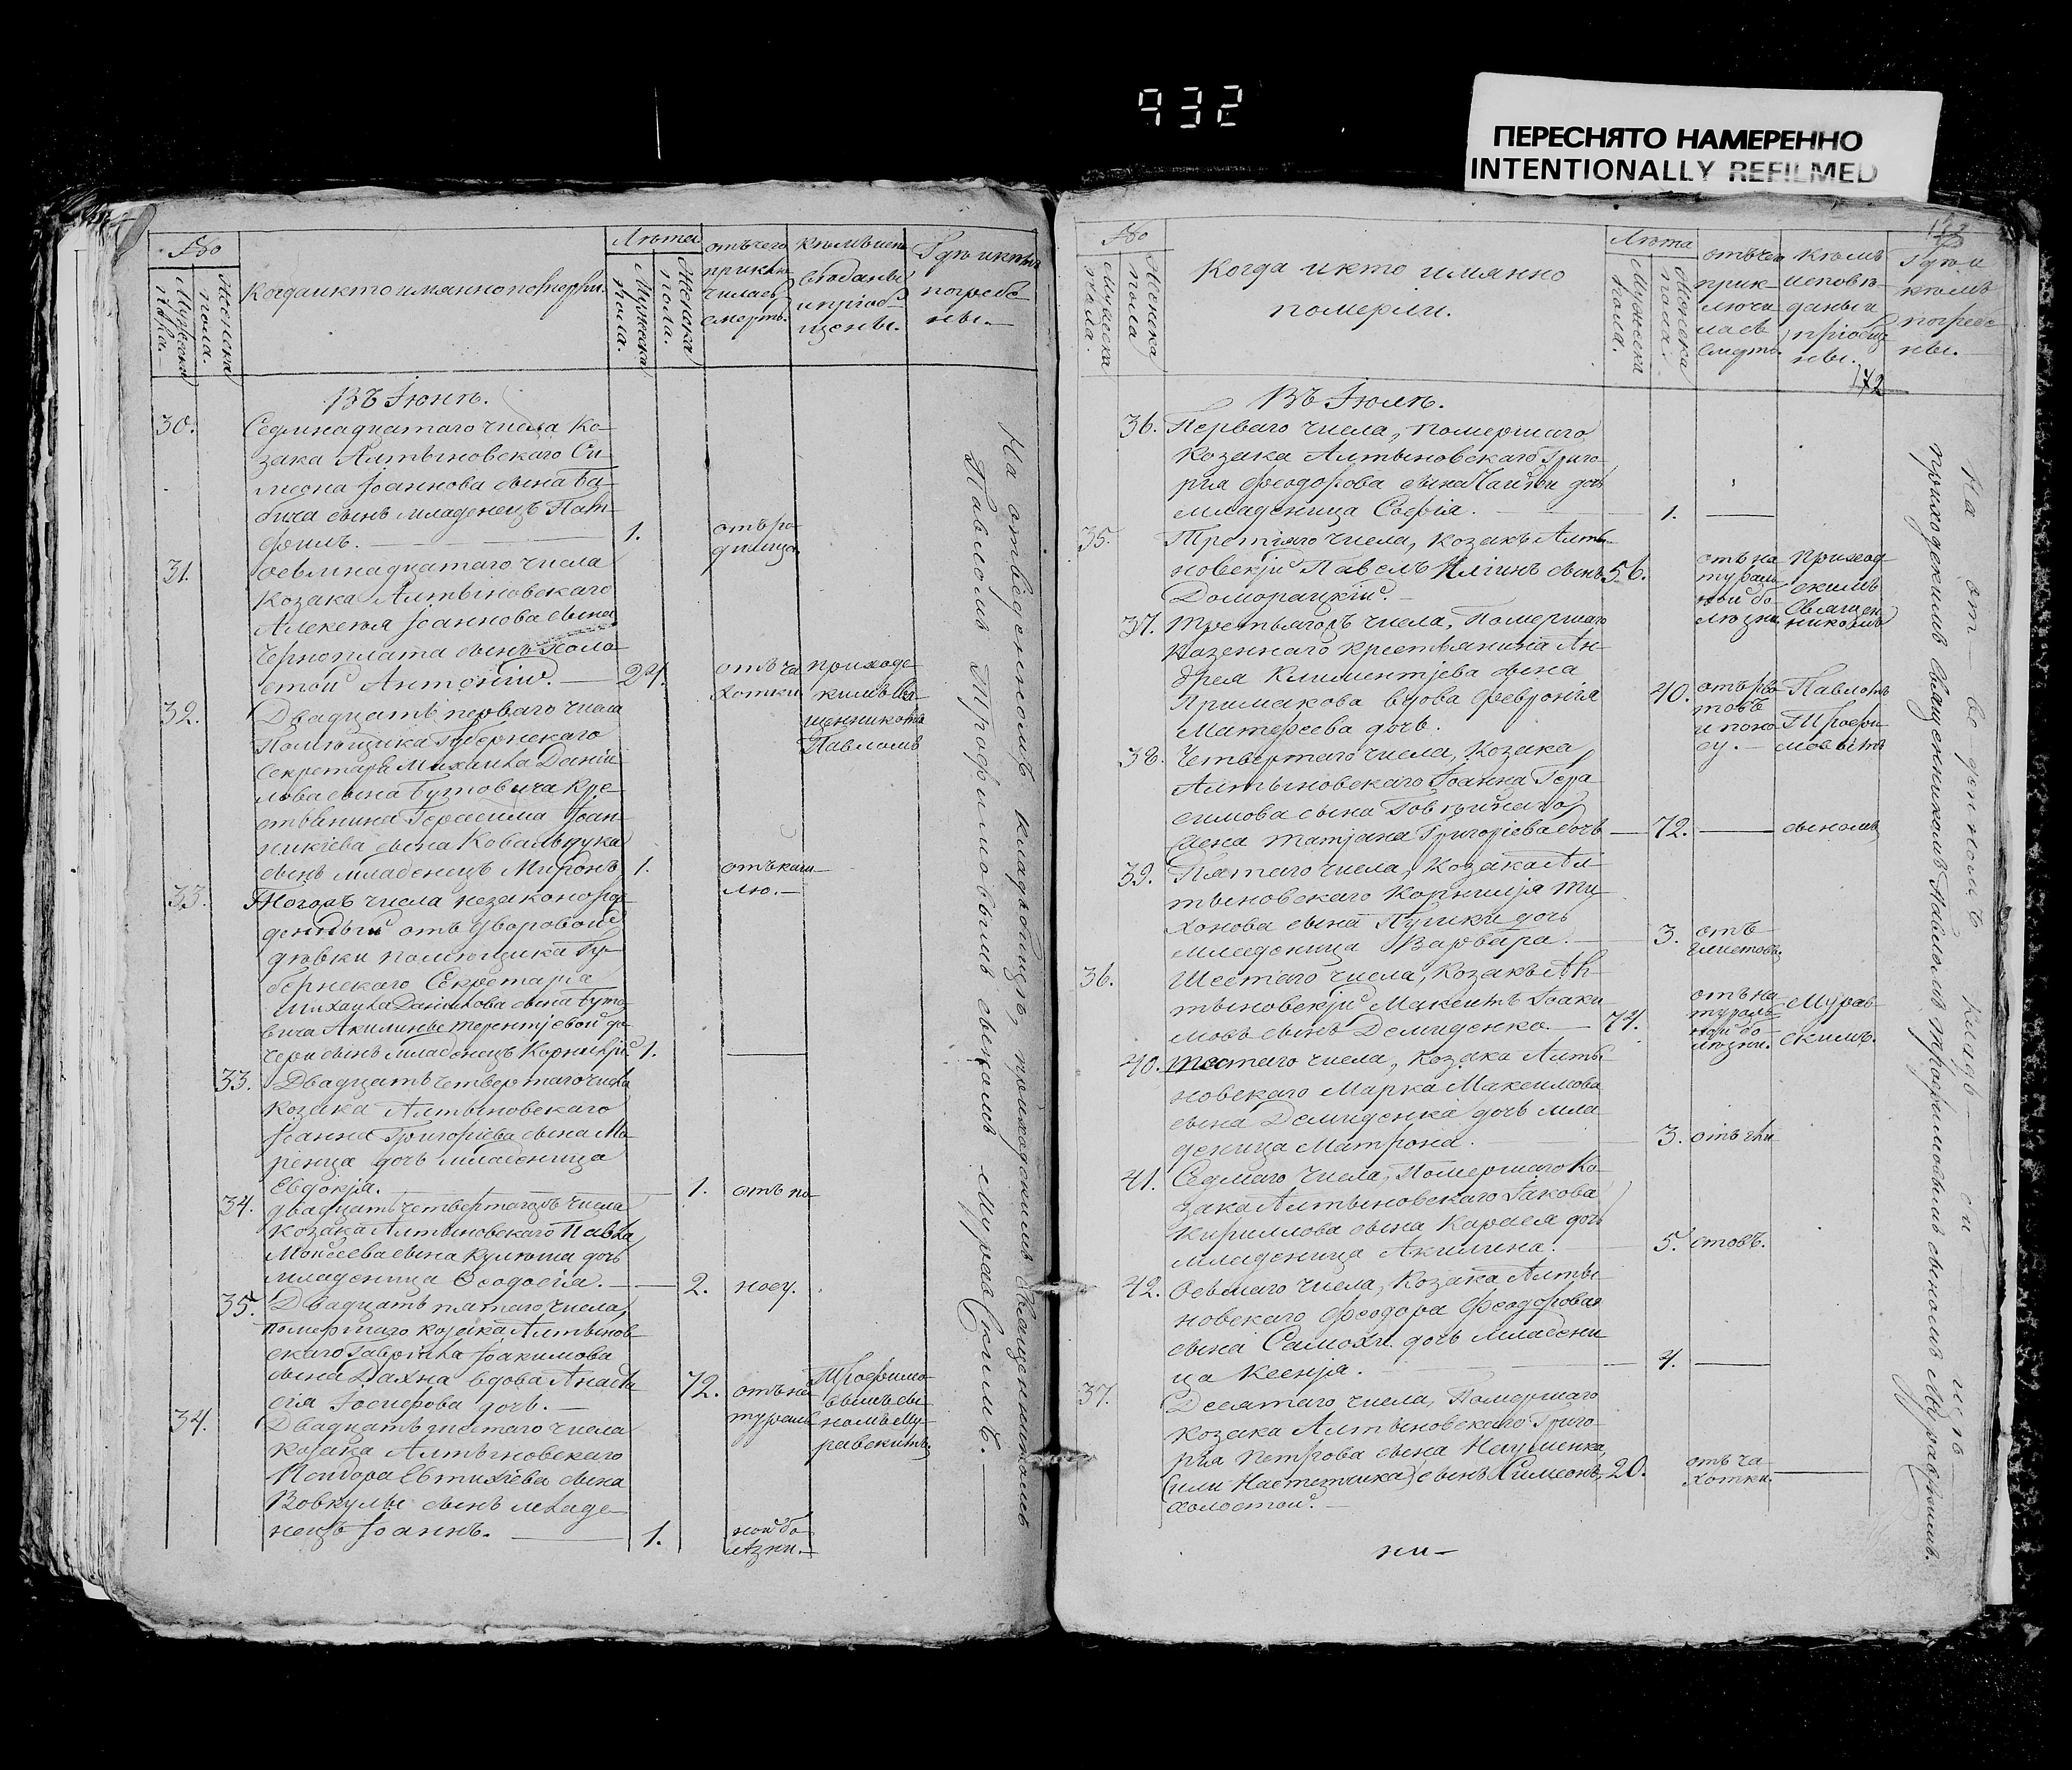 932
ПЕРЕСНЯТО НАМЕРЕННО
INTENTIONALLY REFILMED
№
Мужеска пола.
Женска пола.
Когда и кто имянно померли.
Лѣта
Мужеска пола.
Женска пола.
отъ чего
приклю
чилась
смерть.
Гдѣ и кѣмъ
погребе
ны.
Въ Іюнѣ.
30. Седмнадцатаго числа Ко-
зака Алтыновскаго Си-
меона Іоаннова сына Ба-
бича сынъ младенецъ
1. отъ ро-
димца.
31. Осьмнадцатаго числа
Козака Алтыновскаго
Алексѣя Іоаннова сына
Черноплата сынъ холо
стой Антоній. 24. отъ ча
хотки
приходс
кимъ Свя
щенникомъ
Павломъ
32. Двадцать перваго числа
Помѣщика Губернскаго
Секретаря Михаила Даніи
лова сына Бутовича Кре
стьянина Герасима Іоан
никіева сына Ковальчука
сынъ младенецъ Миронъ 1. отъ каш
лю.
33. Тогожъ числа незаконорож
денный отъ дворовой
дѣвки помѣщика Гу-
бернскаго Секретаря
Михаила Даніилова сына Буто
вича Акилины Терентіевой до
чери сынъ младенецъ Корнилій 1.
33. Двадцать четвертаго числа
Козака Алтыновскаго
Іоанна Григоріева сына Ма
ренца дочь младеница
Евдокія. 1. отъ по
34. Двадцать четвертагожъ числа
Козака Алтыновскаго Павла
Моисеева сына Кулюша дочь
младеница Ѳеодосія. 2. носу.
35. Двадцать пятаго числа,
помершаго козака Алтынов
скаго Гавріила Іоакимова
сына Дахна вдова Анаста
сія Іосифова дочь. 72. отъ на
турал
Трофимо
вымъ сы
номъ Му-
равскимъ.
34. Двадцать шестаго числа
козака Алтыновскаго
Исидора Евтихіева сына
Вовкулы сынъ младе
нецъ Іоаннъ. 1. ной бо
лѣзни.
На отведенномъ кладбищѣ, приходскимъ Священникомъ
Павломъ Трофимовымъ сыномъ Муравскимъ.
№
Мужеска пола.
Женска пола
Когда и кто имянно
померли.
Лѣта
Мужеска пола.
Женска пола.
отъ чего
прик-
лючи
лась
смерть.
Кѣмъ
исповѣ
даны и
пріобще
ны.
Гдѣ и
кѣмъ
погребе
ны.
172
Въ Іюлѣ.
36. Перваго числа, помершаго
Козака Алтыновскаго Григо
рія Ѳеодорова сына дочь
младеница Софія. 1.
35. Третьяго числа, козакъ Алты
новскій Павелъ Иліинъ сынъ 56.
Доморацкій.
отъ на
турал
ной бо
лѣзни
приход
скимъ
Священ
никомъ
37. Третьягожъ числа, Помершаго
Казеннаго крестьянина Ан-
дрея Климентіева сына
Примакова вдова Февронія 40.
Матфеева дочь.
отъ рво
товъ
и поно
су.
Павломъ
Трофи
мовымъ
38. Четвертаго числа, Козака
Алтыновскаго Іоанна Гера
симова сына
жена Татіана Григоріева дочь 72. сыномъ
39. Пятаго числа, Козака Ал
тыновскаго Корнилія Ти
хонова сына дочь
младеница Варвара. 3. отъ
глистовъ.
36. Шестаго числа, Козакъ Ал
тыновскій Максимъ Іоаки
мовъ сынъ Демиденко. 74.
отъ на
турал
ной бо
лѣзни.
Мурав
скимъ.
40. Шестаго числа, козака Алты
новскаго Марка Максимова
сына Демиденка дочь мла
деница Матрона. 3. отъ гли
41. Седмаго числа, Помершаго Ко
зака Алтыновскаго Іакова
Кириллова сына Карася дочь
младеница Акилина. 5. стовъ.
42. Осьмаго числа, Козака Алты
новскаго Феодора Феодорова
сына дочь младени
ца Ксенія. 4.
37. Десятаго числа, Помершаго
козака Алтыновскаго Григо
рія Петрова сына Науменка,
сынъ Симеонъ 20.
холостой.
отъ ча
хотки.
ни-
На отведенномъ кладбищѣ
приходскимъ Священникомъ Павломъ Трофимовымъ сыномъ Муравскимъ.